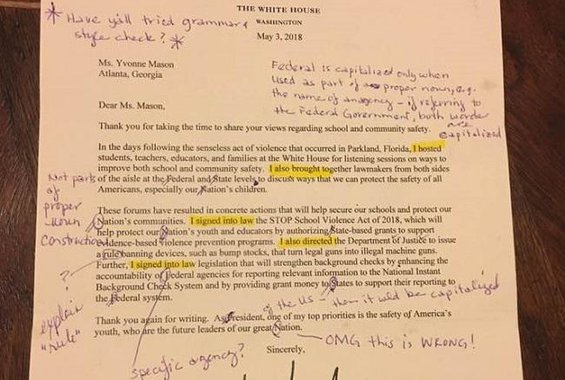 * Have y'all tried grammar &
style check? *
THE WHITE HOUSE
WASHINGTON
May 3, 2018
Ms. Yvonne Mason
Atlanta, Georgia
Federal is capitalized only when
used as part of a proper noun, e.g.
the name of an agency - if referring to
the Federal Government, both words
are
capitalized
Dear Ms. Mason,
Thank you for taking the time to share your views regarding school and community safety.
In the days following the senseless act of violence that occurred in Parkland, Florida, I hosted
students, teachers, educators, and families at the White House for listening sessions on ways to
improve both school and community safety. I also brought together lawmakers from both sides
of the aisle at the Federal and State levels to discuss ways that we can protect the safety of all
Americans, especially our Nation's children.
Not parts
of
proper
noun
Construction
These forums have resulted in concrete actions that will help secure our schools and protect our
Nation's communities. I signed into law the STOP School Violence Act of 2018, which will
help protect our Nation's youth and educators by authorizing State-based grants to support
evidence-based violence prevention programs. I also directed the Department of Justice to issue
a rule banning devices, such as bump stocks, that turn legal guns into illegal machine guns.
Further, I signed into law legislation that will strengthen background checks by enhancing the
accountability of Federal agencies for reporting relevant information to the National Instant
Background Check System and by providing grant money to States to support their reporting to
the Federal system.
?
explain
"rule"
of the US - then it would be capitalized
Thank you again for writing. As President, one of my top priorities is the safety of America's
youth, who are the future leaders of our great Nation.
OMG this is WRONG!
specific agency?
Sincerely,